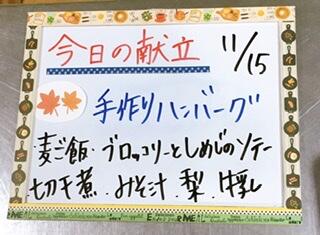 今日の献立 11/15
手作りハンバーグ
・麦ご飯・ブロッコリーとしめじのソテー
切干煮・みそ汁・梨・牛乳